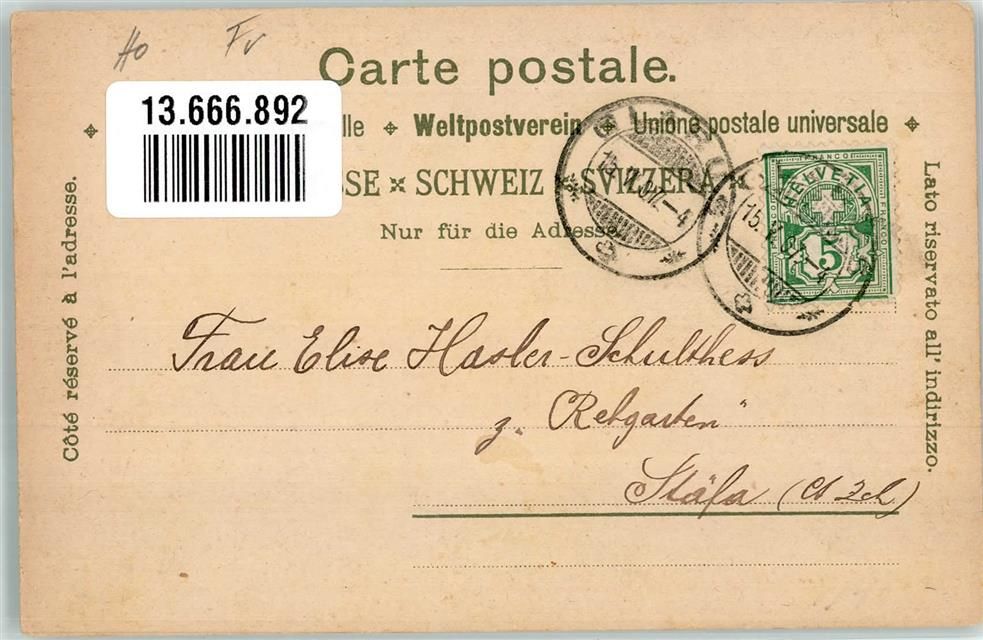 Ho Fv
Carte postale.
13.666.892
lle Weltpostverein Unione postale universale
SSE SCHWEIZ SVIZZERA
Nur für die Adresse
Côté réservé à l'adresse.
Lato riservato all' indirizzo.
FRANCO
HELVETIA
FRANCO
5
Frau Elise Hasler-Schulthess
z. "Rebgarten"
Stäfa (Ct Zch)